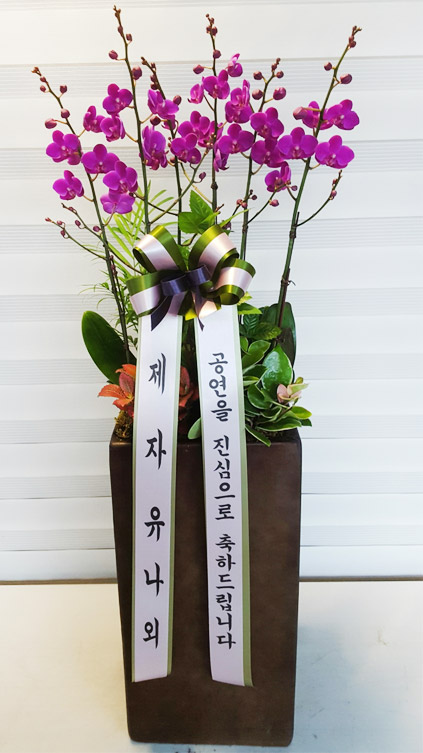 제자유나외
공연을 진심으로 축하드립니다